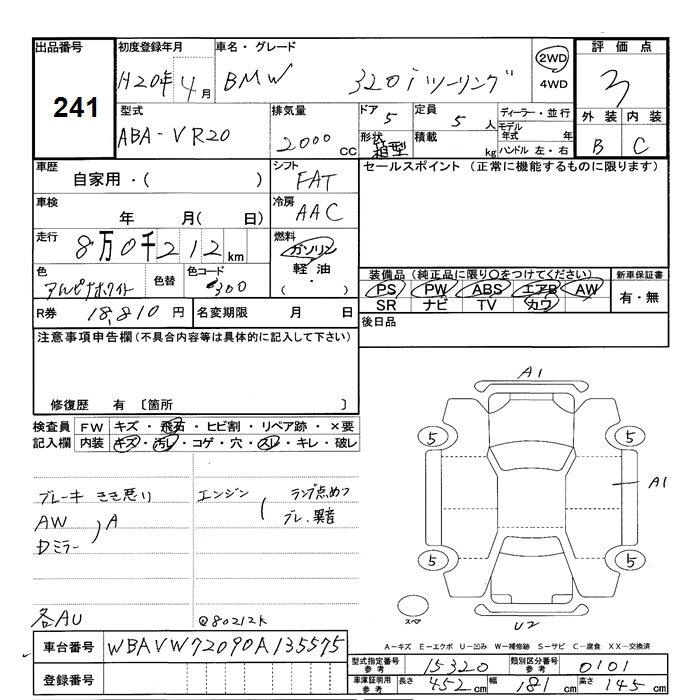 出品番号 初度登録年月 車名・グレード 2WD 評価点
241 H20年4月 BMW 320i ツーリング 4WD 3
型式 排気量 ドア 5 定員 5人 ディーラー・並行 外装 内装
ABA-VR20 2000 CC 形状 箱型 積載 kg モデル年式 年 B C
ハンドル 左・右
車歴 シフト セールスポイント (正常に機能するものに限ります)
自家用・( ) FAT
車検 冷房
年 月( 日) AAC
走行 燃料
8万0千212km ガソリン
色 色替 色コード 軽油 装備品 (純正品に限り○をつけてください) 新車保証書
アルピナホワイト 300 ( ・ ) PS PW ABS エアB AW 有・無
R券 18,810円 名変期限 月 日 SR ナビ TV カワ
注意事項申告欄(不具合内容等は具体的に記入して下さい) 後日品
修復歴 有 〔箇所 〕
検査員 FW キズ・飛石・ヒビ割・リペア跡・×要
記入欄 内装 キズ・汚レ・コゲ・穴・スレ・キレ・破レ
ブレーキ きき悪り エンジン ランプ点めつ
AW A ブレ、異音
Dミラー
各AU @80212k
A1
5 5
A1
5 5
スペア U2
A−キズ E−エクボ U−凹み W−補修跡 S−サビ C−腐食 XX−交換済
車台番号 WBAVW72090A135575
型式指定番号 参考 15320 類別区分番号 参考 0101
登録番号
車庫証明用 参考 長さ 452cm 幅 181cm 高さ 145cm